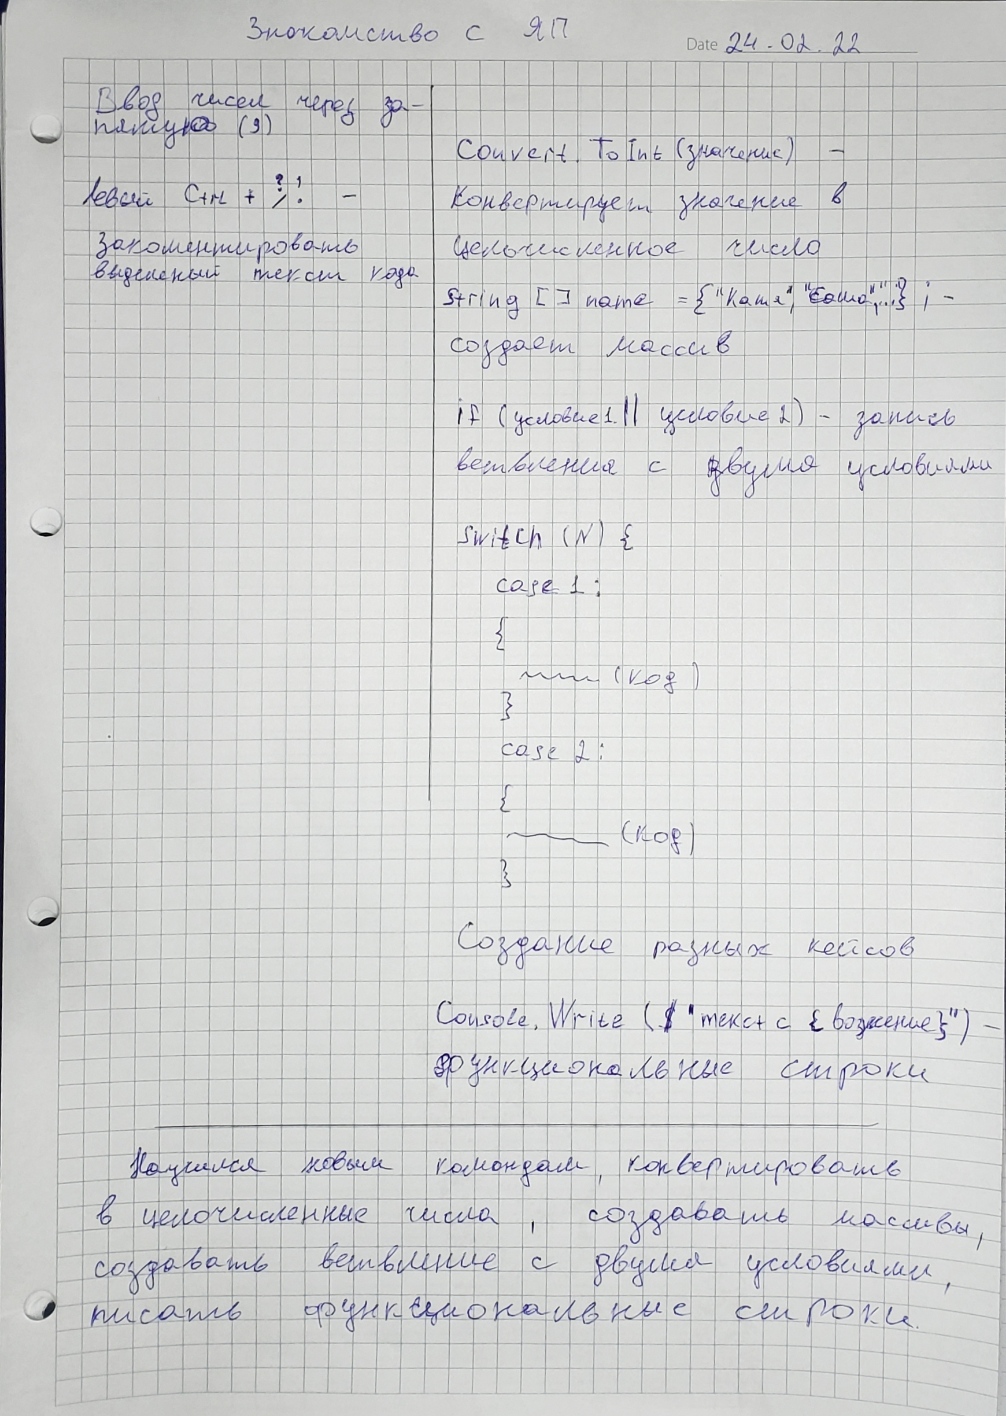 Знакомство с ЯП
Date 24.02.22
Ввод чисел через за-
пятую (,)
Левый Ctrl + ? ! / . –
Закоментировать
выделеный текст кода
Convert.ToInt (значение) –
Конвертирует значение в
целочисленное число
String [] name = {"Катя", "Саша",...} ; –
создает массив
if (условие1 || условие2) – запись
ветвления с двумя условиями
Switch (N) {
case 1:
{
(код)
}
case 2:
{
(код)
}
Создание разных кейсов
Console.Write ($ "текст с {}") –
функциональные строки
Научился новым командам, конвертировать
в целочисленные числа, создавать массивы,
создавать ветвление с двумя условиями,
писать функциональные строки.